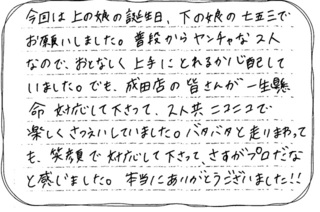 今回は上の娘の誕生日、下の娘の七五三で
お願いしました。普段からヤンチャな2人
なので、おとなしく上手にとれるか心配して
いました。でも、成田店の皆さんが一生懸
命対応して下さって、2人共ニコニコで
楽しくさつえいしていました。バタバタと走りまわって
も、笑顔で対応して下さって、さすがプロだな
と感じました。本当にありがとうございました!!